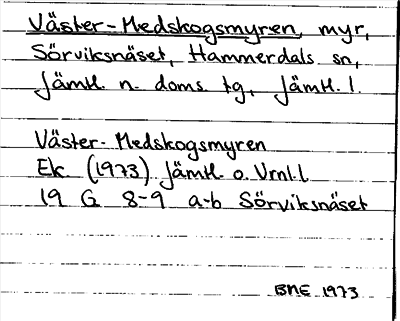 Väster-Medskogsmyren, myr,
Sörviksnäset, Hammerdals sn,
Jämtl. n. doms. tg, Jämtl. l.
Väster-Medskogsmyren
Ek (1973) Jämtl o. Vrml.l
19 G 8-9 a-b Sörviksnäset
BNE 1973